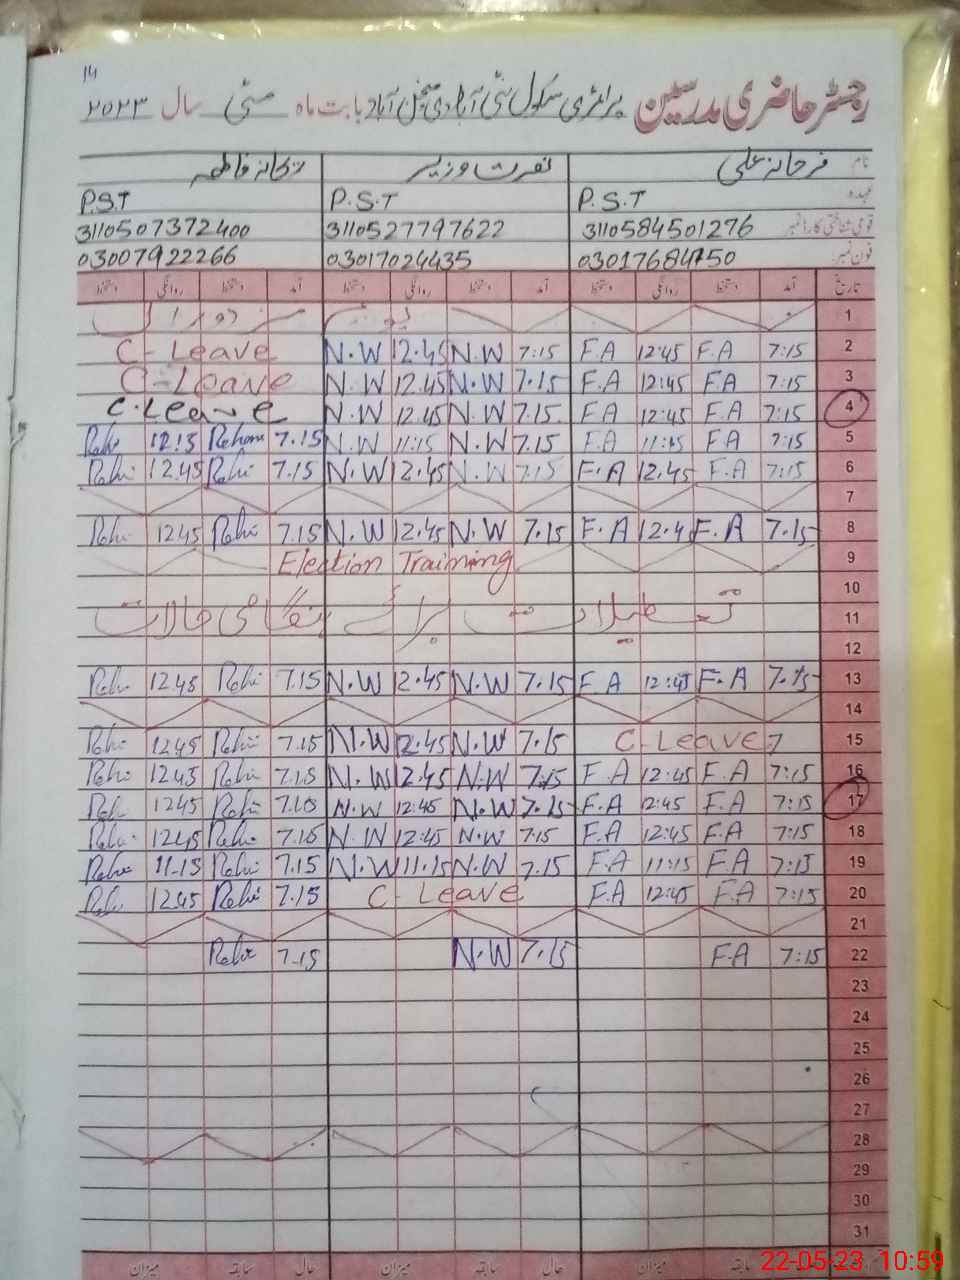 14
رجسٹر حاضری مدرسین پرائمری سکول آباد بابت ماہ مئی سال ۲۰۲۳
نام فرحانہ علی نصرت وزیر فاطمہ
عہدہ P.S.T P.S.T P.S.T
قومی شناختی کارڈ نمبر 3110584501276 3110527797622 3110507372400
فون نمبر 03017024435 03007922266
تاریخ آمد دستخط روانگی دستخط آمد دستخط روانگی دستخط آمد دستخط روانگی دستخط
1
C-Leave N.W 12.45 N.W 7:15 F.A 12:45 F.A 7:15 2
C-Leave N.W 12.45 N.W 7.15 F.A 12:45 F.A 7:15 3
C.Leave N.W 12.45 N.W 7.15 F.A 12:45 F.A 7:15 4
7.15 N.W 11:15 N.W 7.15 F.A 11:15 F.A 7:15 5
Rehi 12.45 Rehi 7.15 N.W 12.45 N.W 7.15 F.A 12.45 F.A 7:15 6
7
Rehi 1245 Rehi 7.15 N.W 12.45 N.W 7.15 F.A 12.4 F.A 7.15 8
Election Training 9
10
تعطیلات برائے ہنگامی حالات 11
12
Rehi 1245 Rehi 7.15 N.W 12.45 N.W 7.15 F A 12:45 F.A 7.15 13
14
Rehi 1245 Rehi 7.15 N.W 12.45 N.W 7.15 C-Leave 15
Rehi 1245 Rehi 7.15 N.W 12.45 N.W 7.15 F.A 12:45 F.A 7:15 16
Rehi 1245 Rehi 7.15 N.W 12:45 N.W 7.15 F.A 12:45 F.A 7:15 17
Rehi 1245 Rehi 7.15 N.W 12:45 N.W 7.15 F.A 12:45 F.A 7:15 18
Rehi 11.15 Rehi 7.15 N.W 11.15 N.W 7.15 F.A 11:15 F.A 7:15 19
Rehi 1245 Rehi 7.15 C-Leave F.A 12:45 F.A 7:15 20
21
Rehi 7.15 N.W 7.15 F.A 7:15 22
23
24
25
26
27
28
29
30
31
حال سابقہ میزان حال سابقہ میزان سابقہ میزان
22-05-23 10:59